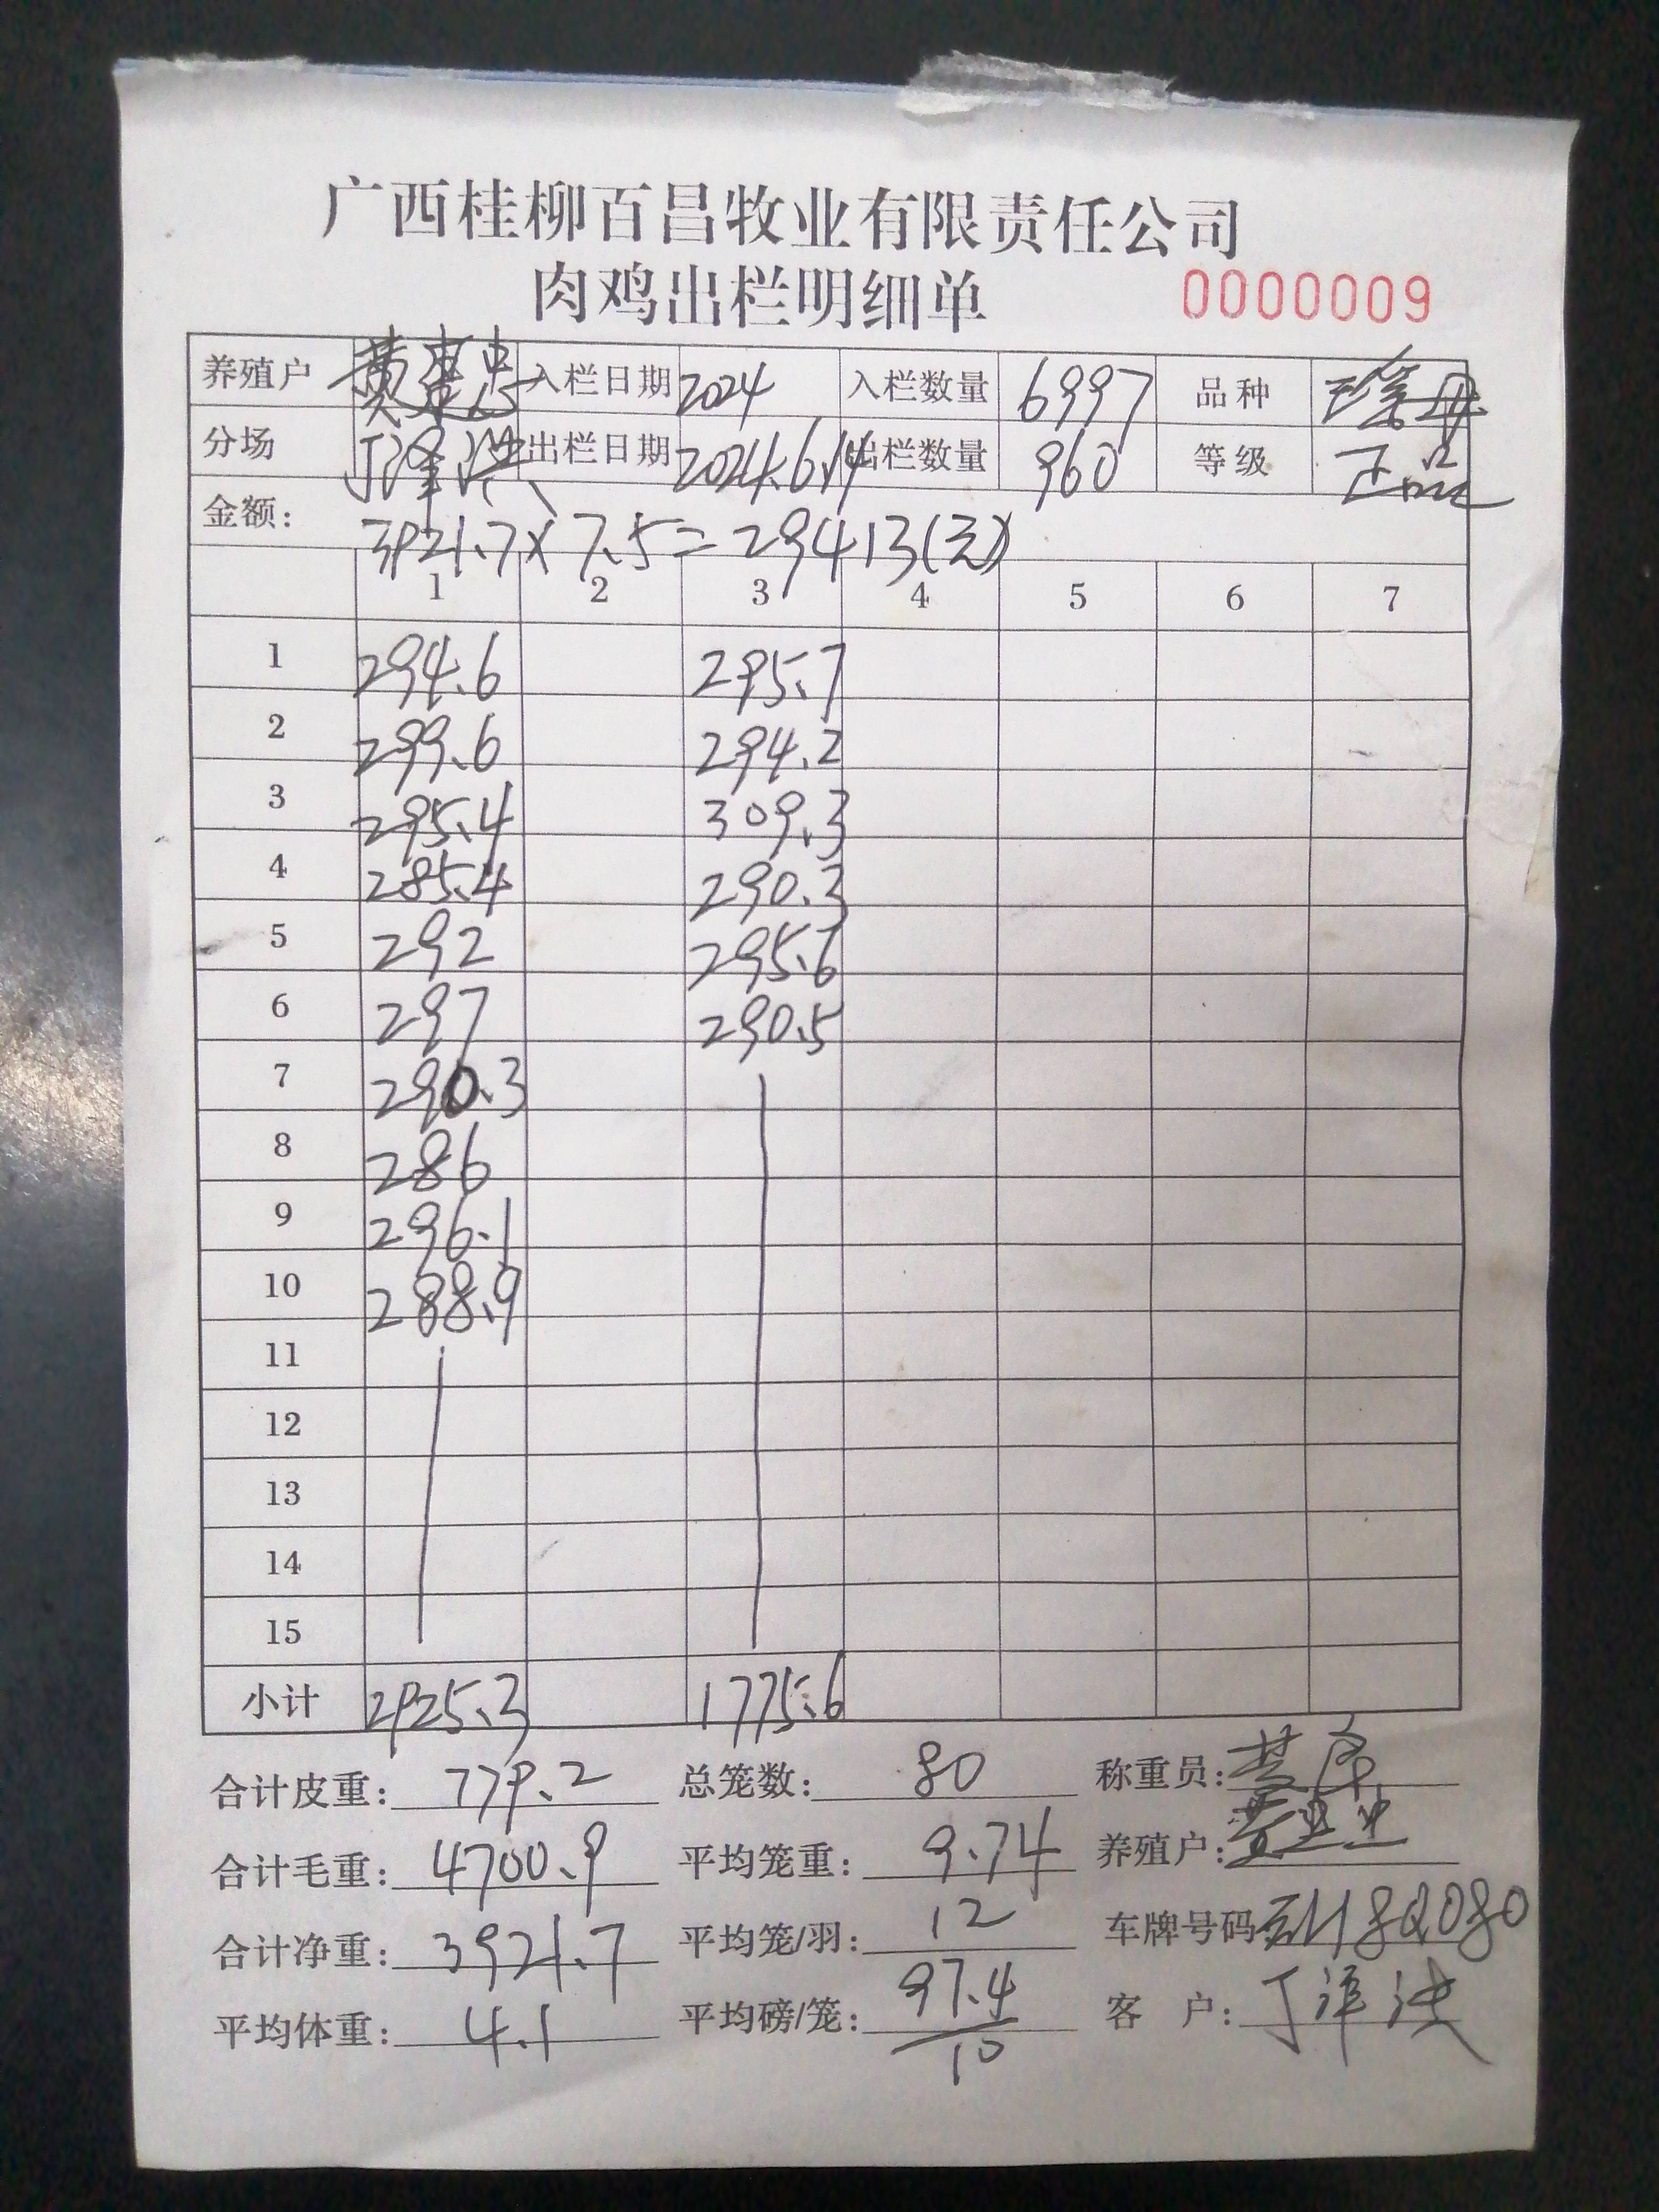 广西桂柳百昌牧业有限责任公司
肉鸡出栏明细单 0000009
养殖户 入栏日期 2024 入栏数量 6997 品种
分场 丁泽洪 出栏日期 2024.6.14 出栏数量 960 等级 正品
金额: 3921.7×7.5=29413(元)
1 2 3 4 5 6 7
1 294.6 295.7
2 299.6 294.2
3 295.4 309.3
4 285.4 290.3
5 292 295.6
6 297 290.5
7 290.3
8 286
9 296.1
10 288.9
11
12
13
14
15
小计 2925.3 1775.6
合计皮重: 779.2 总笼数: 80 称重员:
合计毛重: 4700.9 平均笼重: 9.74 养殖户:
合计净重: 3921.7 平均笼/羽: 12 车牌号码:
平均体重: 4.1 平均磅/笼: 97.4/10 客 户: 丁泽洪